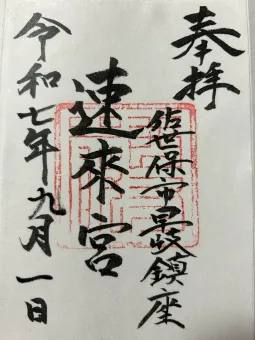 奉拝
佐世保市早岐鎮座
速來宮
令和七年九月一日